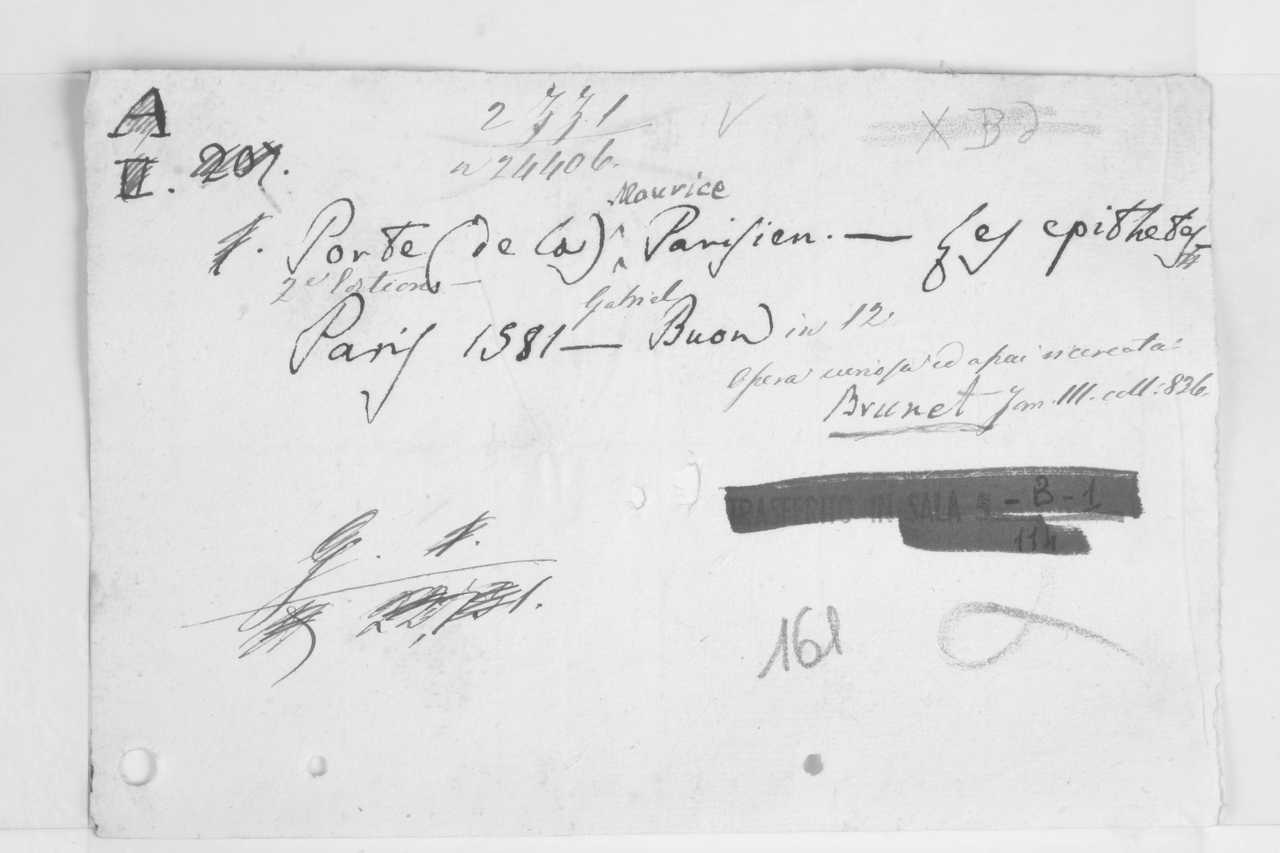 A
2 771
XBd
II. 207.
n 24406.
Maurice
Porte (de la) Parisien. — Les epithetes
Gabriel
Paris 1581 — Buon in 12
Opera curiosa ed assai ricercata:
Brunet Tom. III. coll: 826.
TRASFERITO IN SALA - B - 1
114
G.
161